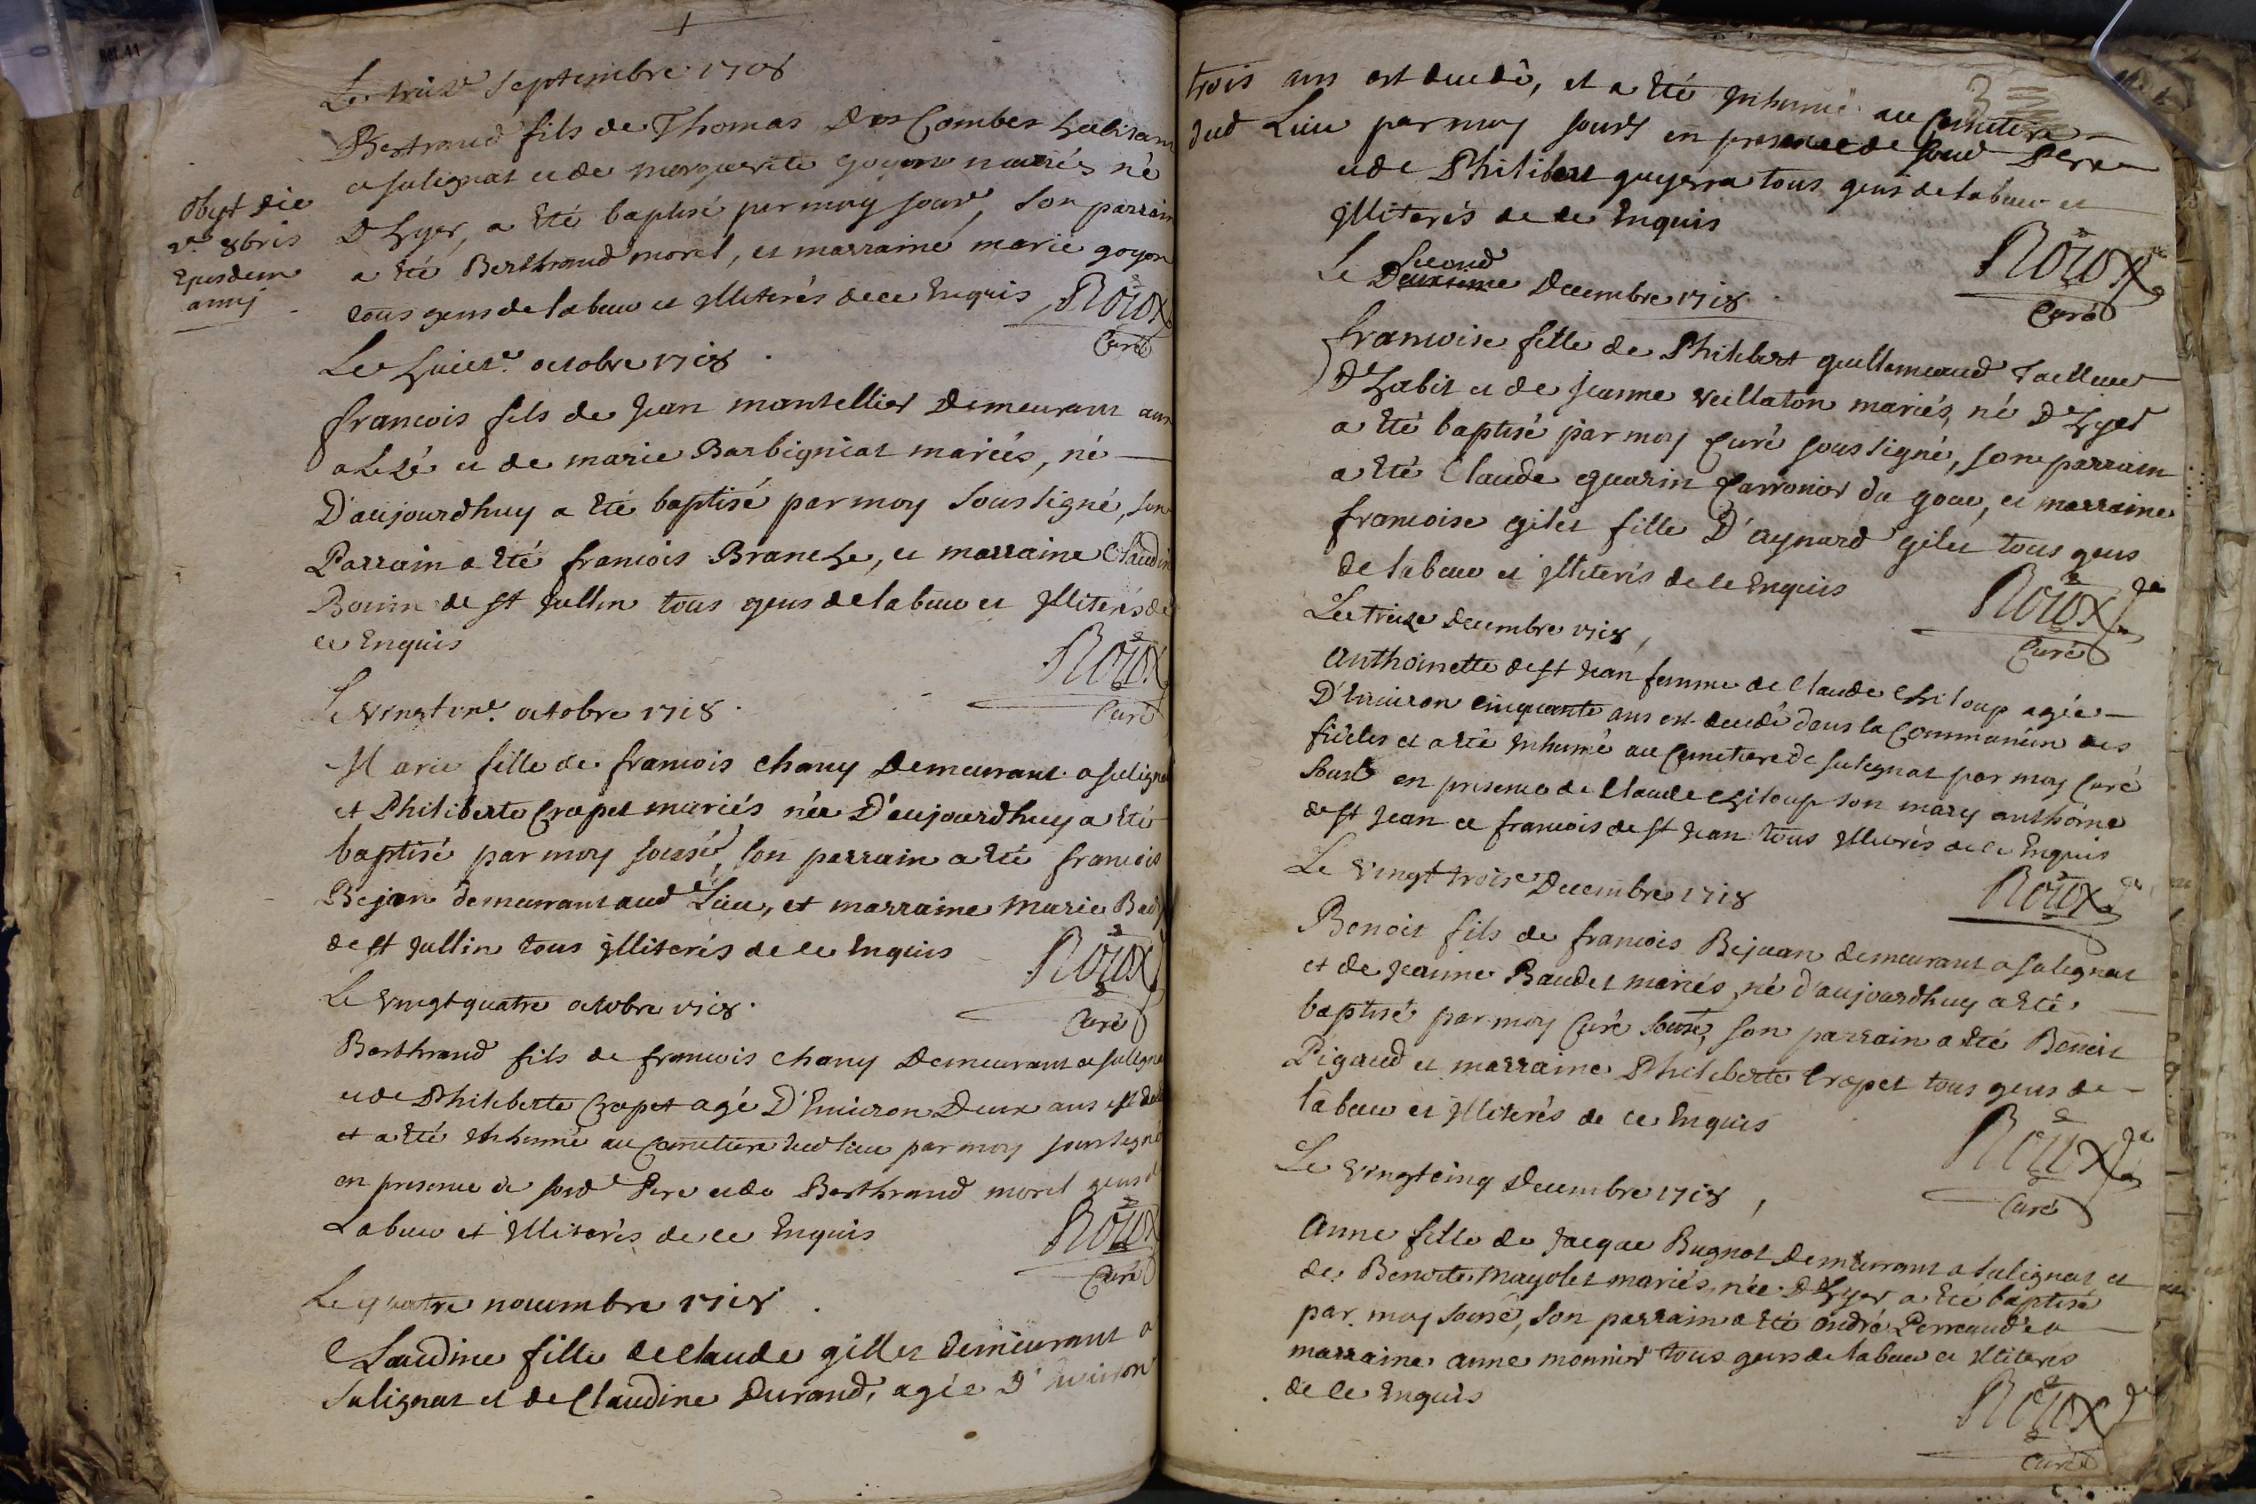 Le treize Septembre 1708
Bertrand fils de Thomas Des Combes habitant
a sulignat et de marguerite goyon mariés né
D'hyer, a été baptisé par moy sousé, son parrain
a été Berthrand morel, et marraine marie goyon
tous gens de labeur et illiterés de ce Enquis Roux
Curé
obyt die
2e 8bris
Ejusdem
annj
Le huict.e octobre 1718
francois fils de Jean montellier Demeurant
a Lezé et de marie Barbigniat mariés, né
D'aujourdhuy a été baptisé par moy soussigné, son
Parrain a été francois Branche, et marraine Claudine
Bonin de st Jullin tous gens de labeur et illiterés de
ce Enquis
Roux
Curé
Le vingt une octobre 1718
Marie fille de francois chany Demeurant a suligna
et Philiberte Crapet mariés née D'aujourdhuy a été
baptisé par moy soussé, son parrain a été francois
Bejan demeurant aud Lieu, et marraine Marie
de st Jullin tous illiterés de ce Enquis
Roux
Curé
Le vingt quatre octobre 1718
Berthrand fils de francois chany Demeurant a suligna
et de Philiberte Crapet agé D'Environ Deux ans est
et a été Inhumé au Cemetiere dud lieu par moy soussigné
en presence de sond Pere et de Berthrand morel gens d
Labeur et illiterés de ce Enquis
Roux
Curé
Le quatre novembre 1718
Claudine fille de claude gilles demeurant a
Sulignat et de Claudine Durand, agée D'Environ
trois ans est decedé, et a été Inhumé au Cemetiere
dud Lieu par moy sousé en presence de sond Pere
et de Philibert guyerra tous gens de labeur et
illiterés de ce Enquis
Roux
Curé
Le second
Deuxieme Decembre 1718
francoise fille de Philibert guillemeaud Tailleur
D'habit et de Jeanne veillaton mariés, né D'hyer
a été baptisé par moy Curé soussigné, son parrain
a été Claude guarin, et marraine
francoise gilet fille D'aynard gilet tous gens
de labeur et illiterés de ce Enquis
Roux
Curé
Le treize Decembre 1718
Anthoinette de st Jean femme de Claude chiloup agée
D'Environ cinquante ans est decedé dans la Communion des
fideles et a été Inhumé au Cemetiere de sulegnat par moy Curé
sousé en presence de Claude chiloup son mary anthoine
de st Jean et francois de st Jean tous illiterés de ce Enquis
Roux
Le vingt trois Decembre 1718
Benoit fils de francois Bejuan demeurant a sulegnat
et de jeanne Baudet mariés né d'aujourdhuy a été
baptisé par moy Curé sousé, son parrain a été Benoit
Pigaud et marraine Philiberte Crapet tous gens de
labeur et illiterés de ce Enquis
Roux
Curé
Le vingt cinq Decembre 1718
Anne fille de Jacque Bugnot demeurant a sulignat et
de Benoite Mayolet mariés, née D'hyer a été baptisé
par moy sousé, son parrain a été André Perreaud et
marraine anne monnier tous gens de labeur et illiterés
de ce Enquis
Roux
Curé